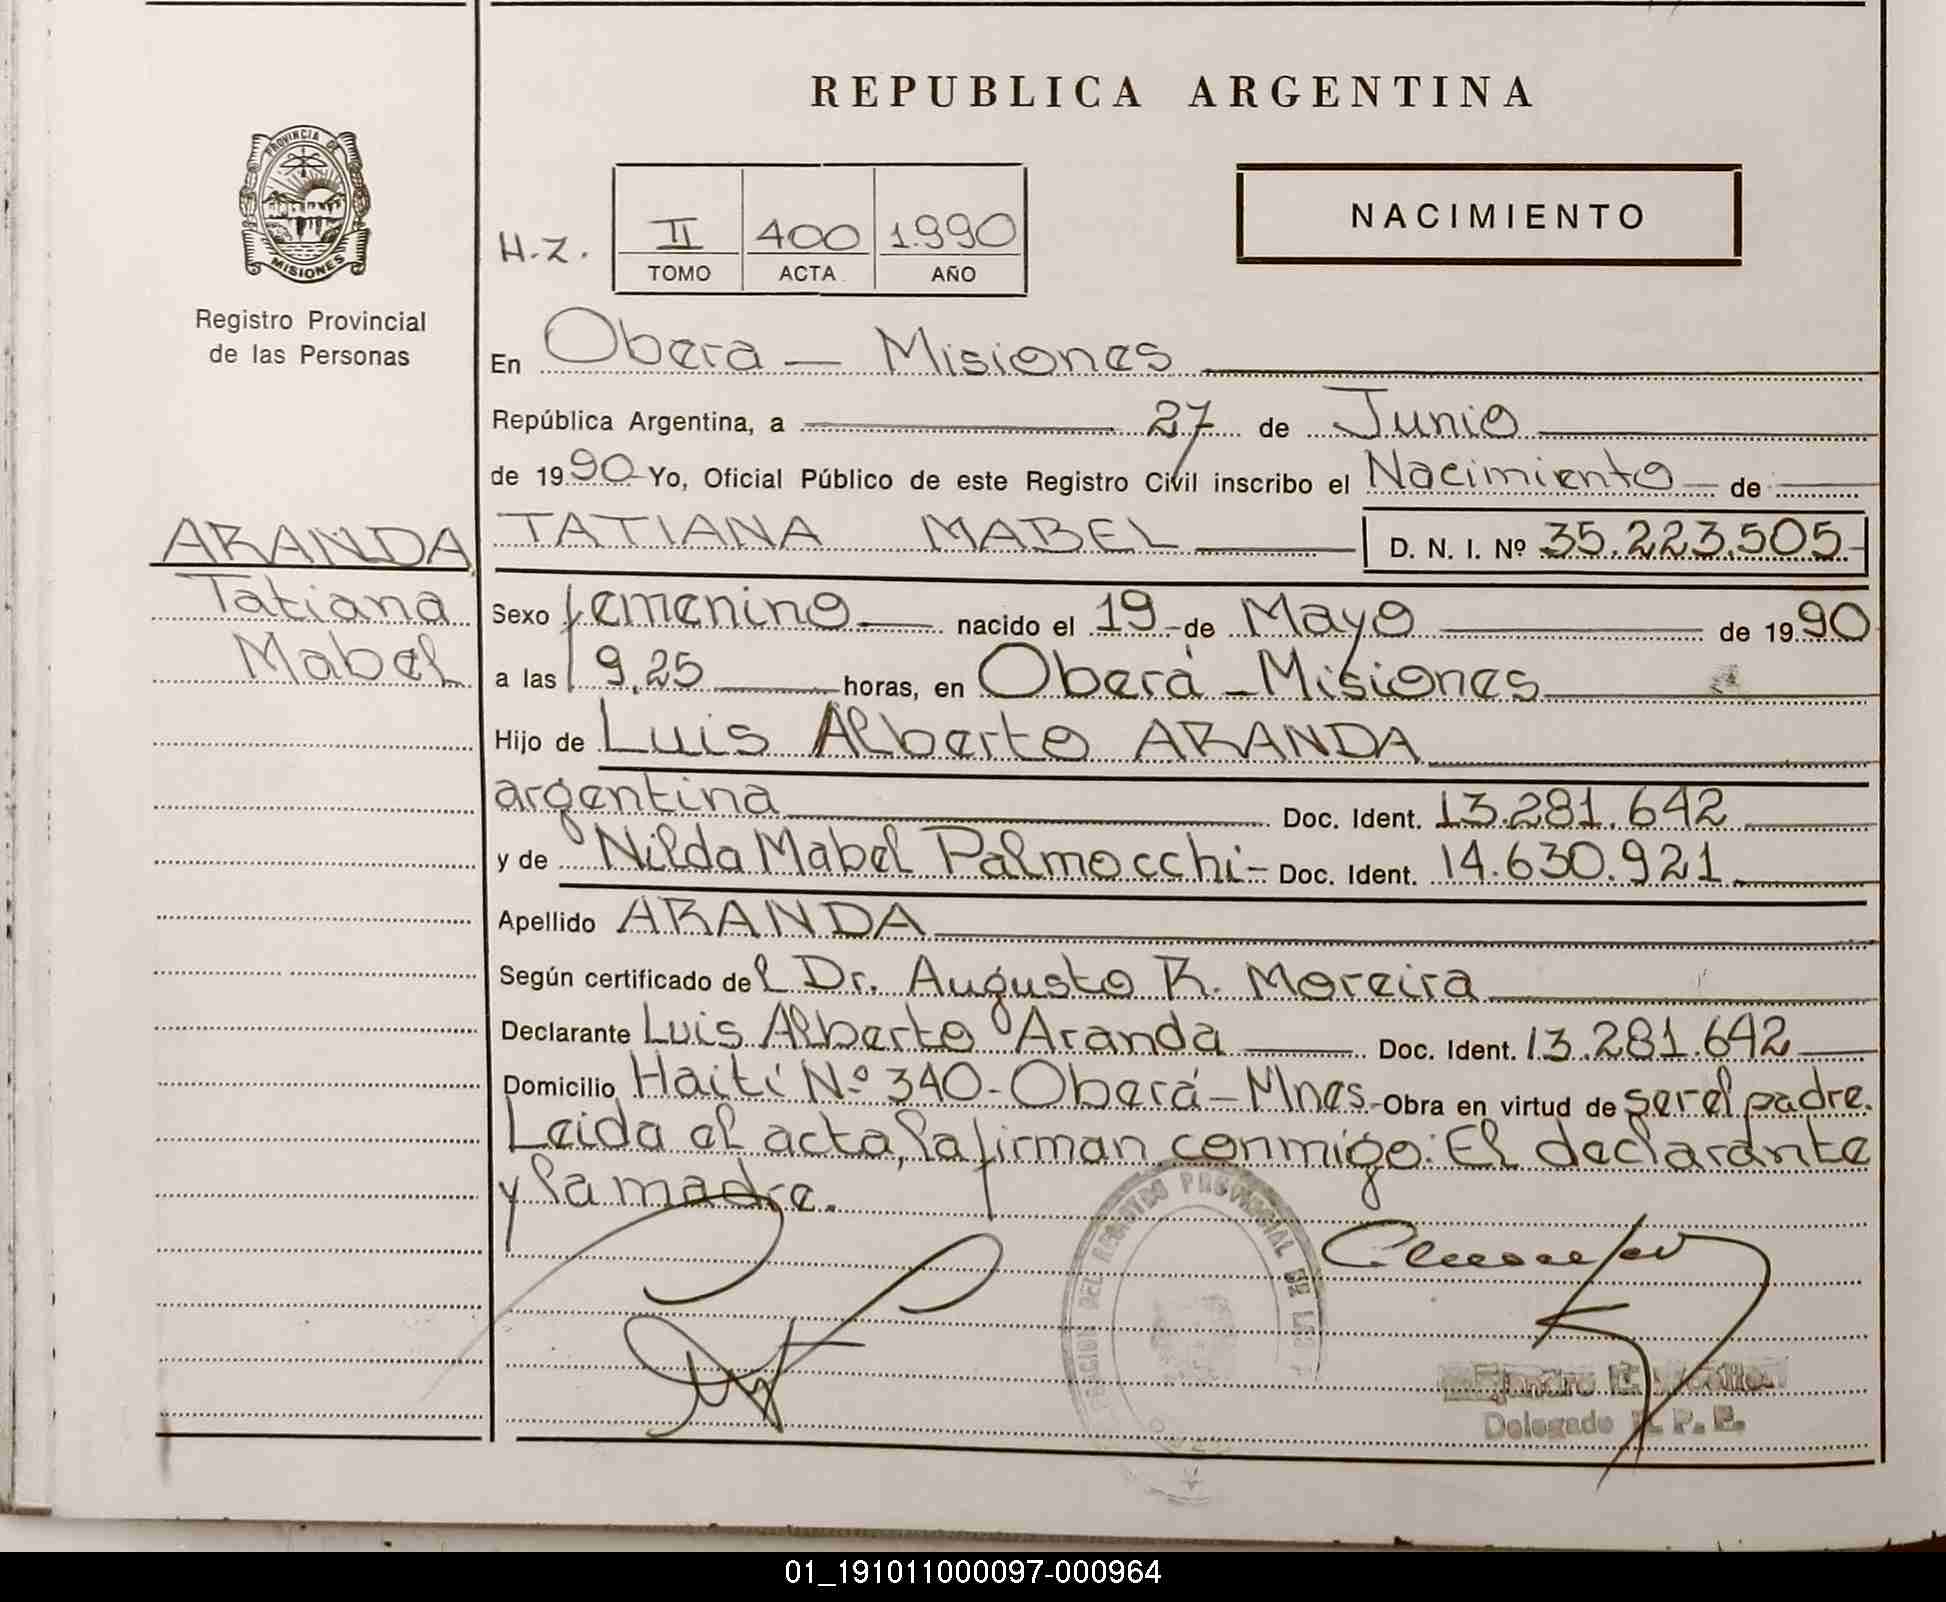 REPUBLICA ARGENTINA
PROVINCIA DE
MISIONES
Registro Provincial
de las Personas
H.Z.
II 400 1.990
TOMO ACTA AÑO
NACIMIENTO
En Obera — Misiones
República Argentina, a 27 de Junio
de 1990 Yo, Oficial Público de este Registro Civil inscribo el Nacimiento de
ARANDA,
Tatiana
Mabel
TATIANA MABEL D. N. I. Nº 35.223.505
Sexo femenino nacido el 19 de Mayo de 1990
a las 9,25 horas, en Oberá - Misiones
Hijo de Luis Alberto ARANDA
argentina Doc. Ident. 13.281.642
y de Nilda Mabel Palmocchi - Doc. Ident. 14.630.921
Apellido ARANDA
Según certificado del Dr. Augusto R. Moreira
Declarante Luis Alberto Aranda Doc. Ident. 13.281.642
Domicilio Haití Nº 340 - Oberá - Mnes. Obra en virtud de ser el padre.
Leida el acta, la firman conmigo: El declarante
y la madre.
DEL REGISTRO PROVINCIAL DE LAS P
Delegado R. P. E.
01_191011000097-000964